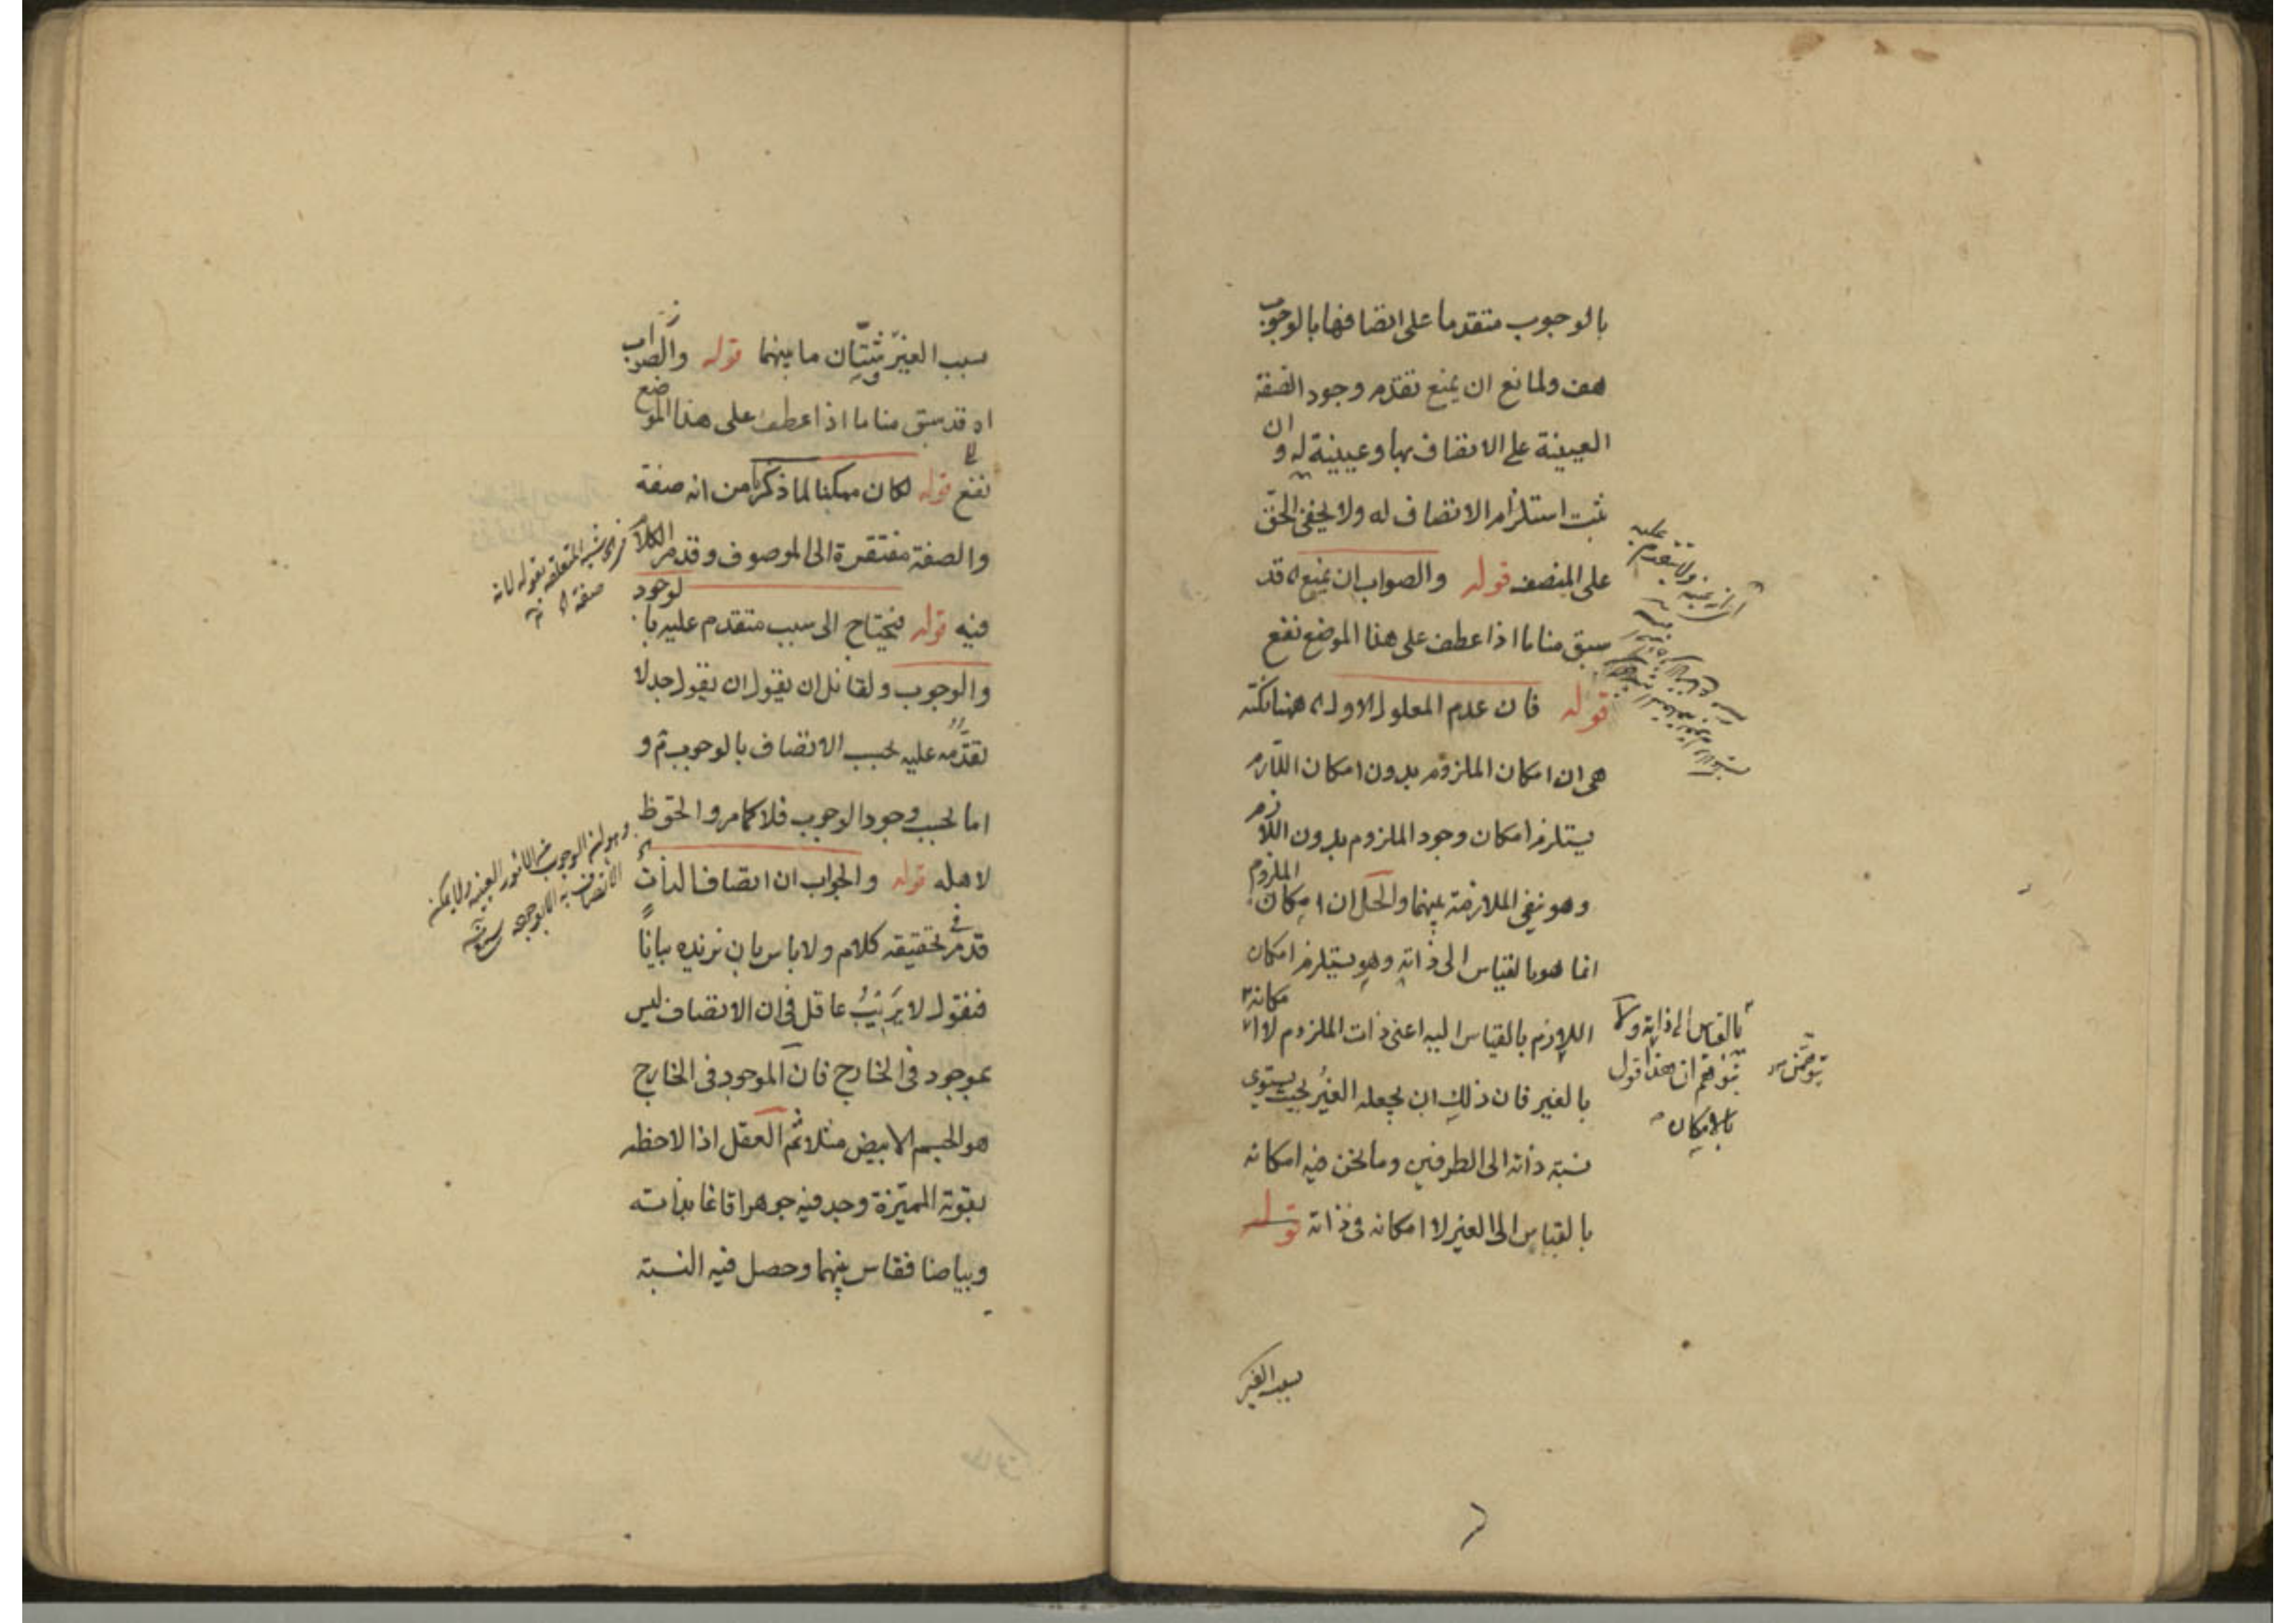 بالوجوب متقدما على اتصافها بالوجوب
هف ولمانع ان يمنع تقدم وجود الصفة
العينية على الاتصاف بها وعينية له وان
ثبت استلزام الاتصاف له ولا يخفى الحق
على المنصف قوله والصواب ان يمنع اه قد
سبق منا ما اذا عطف على هذا الموضع نفع
قوله فان عدم المعلول الاول اه ههنا نكتة
هى ان امكان الملزوم بدون امكان اللازم
يستلزم امكان وجود الملزوم بدون اللازم
وهو نفى الملازمة بينهما والحل ان امكان الملزوم
انما هو بالقياس الى ذاته وهو يستلزم امكان
اللازم بالقياس اليه اعنى ذات الملزوم لا امكانه
بالغير فان ذلك ان يجعله الغير بحيث يستوى
نسبة ذاته الى الطرفين وما نحن فيه امكانه
بالقياس الى الغير لا امكانه فى ذاته قوله
بالقياس الى ذاته ولا
يتوهم ان هذا قول
بالامكان
بسبب الغير
بسبب الغير وشتان ما بينهما قوله والصواب
اه قد سبق منا ما اذا عطف على هذا الموضع
نفع قوله لكان ممكنا لما ذكرنا من انه صفة
والصفة مفتقرة الى الموصوف وقد مر الكلام
فيه قوله فيحتاج الى سبب متقدم عليه بالوجود
والوجوب ولقائل ان يقول ان يقول جدلا
تقدمه عليه بحسب الاتصاف بالوجوب ثم و
اما بحسب وجود الوجوب فلا كما مر والحق ظ
لاهله قوله والجواب ان اتصاف الذات
قد مر فى تحقيقه كلام ولا باس بان نزيده بيانا
فنقول لا يريب عاقل فى ان الاتصاف ليس
بموجود فى الخارج فان الموجود فى الخارج
هو الجسم الابيض مثلا ثم العقل اذا لاحظه
بقوته المميزة وجد فيه جوهرا قائما بذاته
وبياضا فقاس بينهما وحصل فيه النسبة
فى الحاشية المتعلقة بقوله لانه
صفة اه
وهو ان الوجوب من الامور العينية ولا يمكن
الاتصاف به الا بوجوده